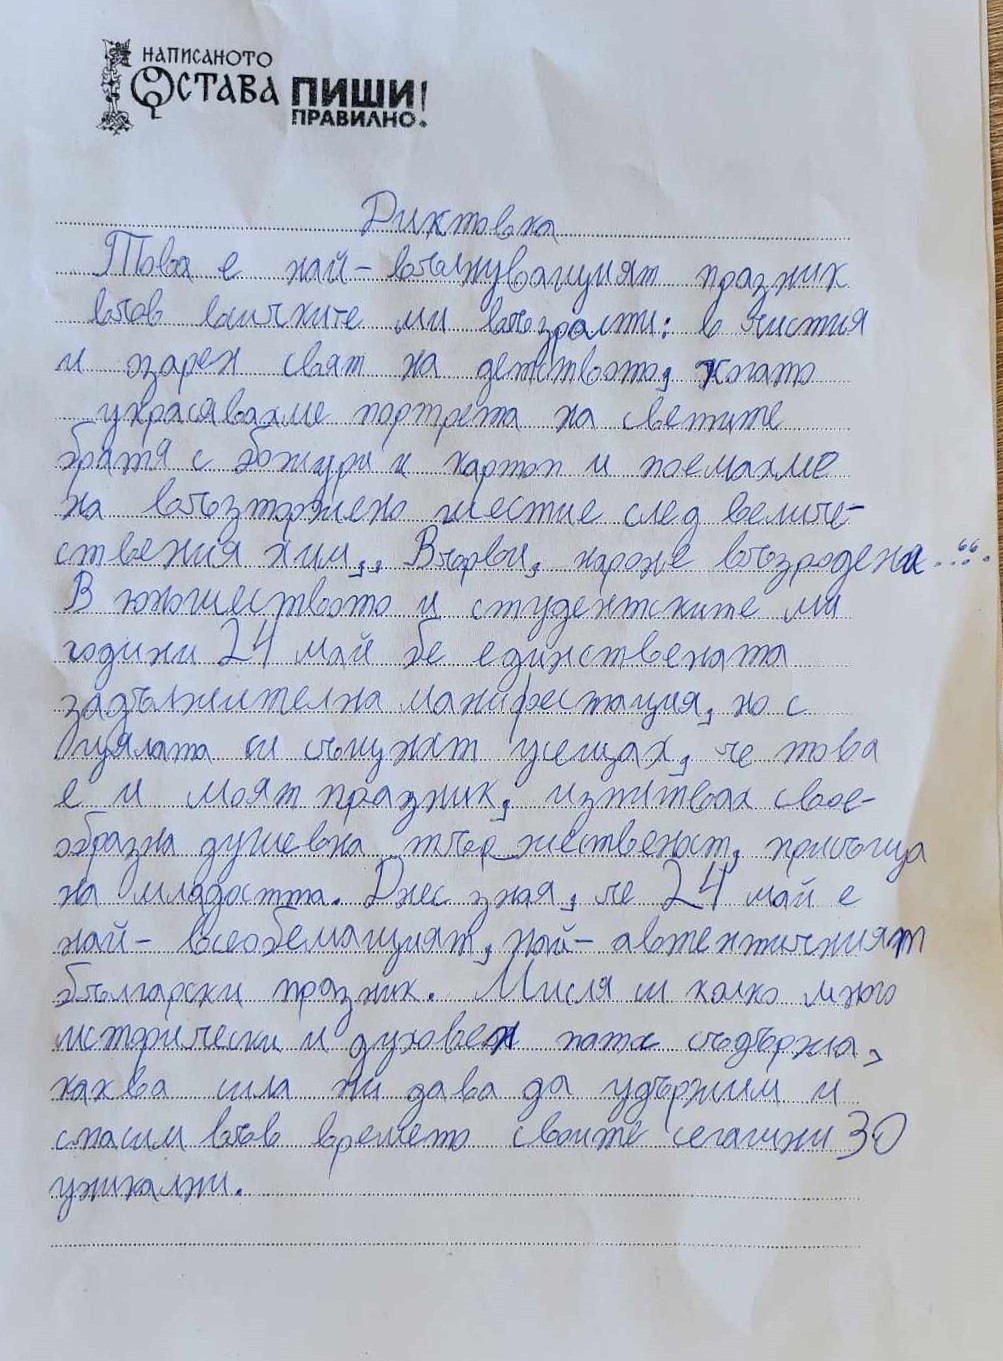 НАПИСАНОТО
ОСТАВА ПИШИ
ПРАВИЛНО!
Диктовка
Това е най-вълнуващият празник
във всичките ми възрасти: в чистия
и озарен свят на детството, когато
украсявахме портрета на светите
братя с божури и картон и поемахме
на възторжено шествие след величе-
ствения химн,, Върви, народе възродени...“.
В юношеството и студентските ми
години 24 май бе единствената
задължителна манифестация, но с
цялата си същност усещах, че това
е и моят празник, изпитвах свое-
образна душевна тържественост, присъща
на младостта. Днес зная, че 24 май е
най- всеобемащият, най- автентичният
български празник. Мисля си колко много
исторически и духовен патос съдържа,
каква сила ни дава да удържим и
спасим във времето своите сегашни 30
уникални.